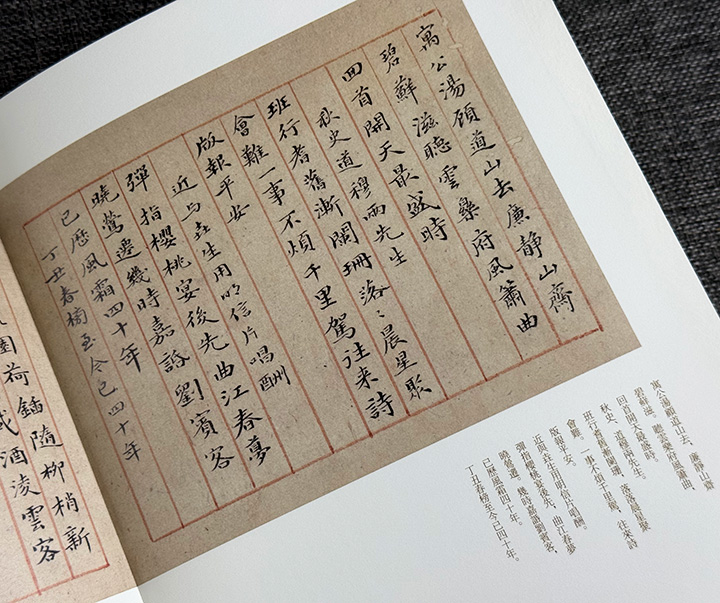 寓公湯頤道山去廉静山齋
碧蘚滋聽雲樂府風簫曲
回首開天最盛時
秋史道穆兩先生
班行耆舊漸闌珊落〻晨星聚
會難一事不煩千里駕往来詩
版報平安
近与垚生用明信片唱酬
彈指櫻桃宴後先曲江春夢
曉鶯遷幾時嘉話劉賓客
已歷風霜四十年
丁丑春榜至今已四十年
園荷鍤隨柳梢新
酒淩雲客
寓公湯頤道山去、廉靜山齋
碧蘚滋。聽雲樂府風簫曲、
回首開天最盛時。
秋史、道穆兩先生。
班行耆舊漸闌珊、落落晨星聚
會難。一事不煩千里駕、往來詩
版報平安。
近與垚生用明信片唱酬。
彈指櫻桃宴後先、曲江春夢
曉鶯遷。幾時嘉話劉賓客、
已歷風霜四十年。
丁丑春榜至今已四十年。